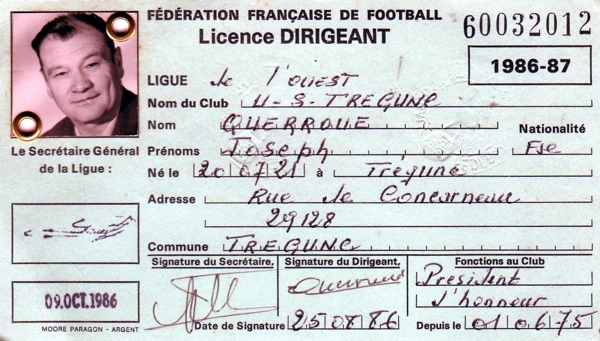 FÉDÉRATION FRANÇAISE DE FOOTBALL
Licence DIRIGEANT
60032012
1986-87
LIGUE de l'OUEST
Nom du Club U-S-TREGUNC
Nom QUERROUE
Nationalité
Prénoms Joseph Fse
Né le 20 07 21 à Trégunc
Adresse Rue de Concarneau
29128
Commune TREGUNC
Le Secrétaire Général
de la Ligue :
09.OCT.1986
MOORE PARAGON - ARGENT
Signature du Secrétaire,
Signature du Dirigeant,
Date de Signature 25 08 86
Fonctions au Club
Président
d'honneur
Depuis le 01 06 75